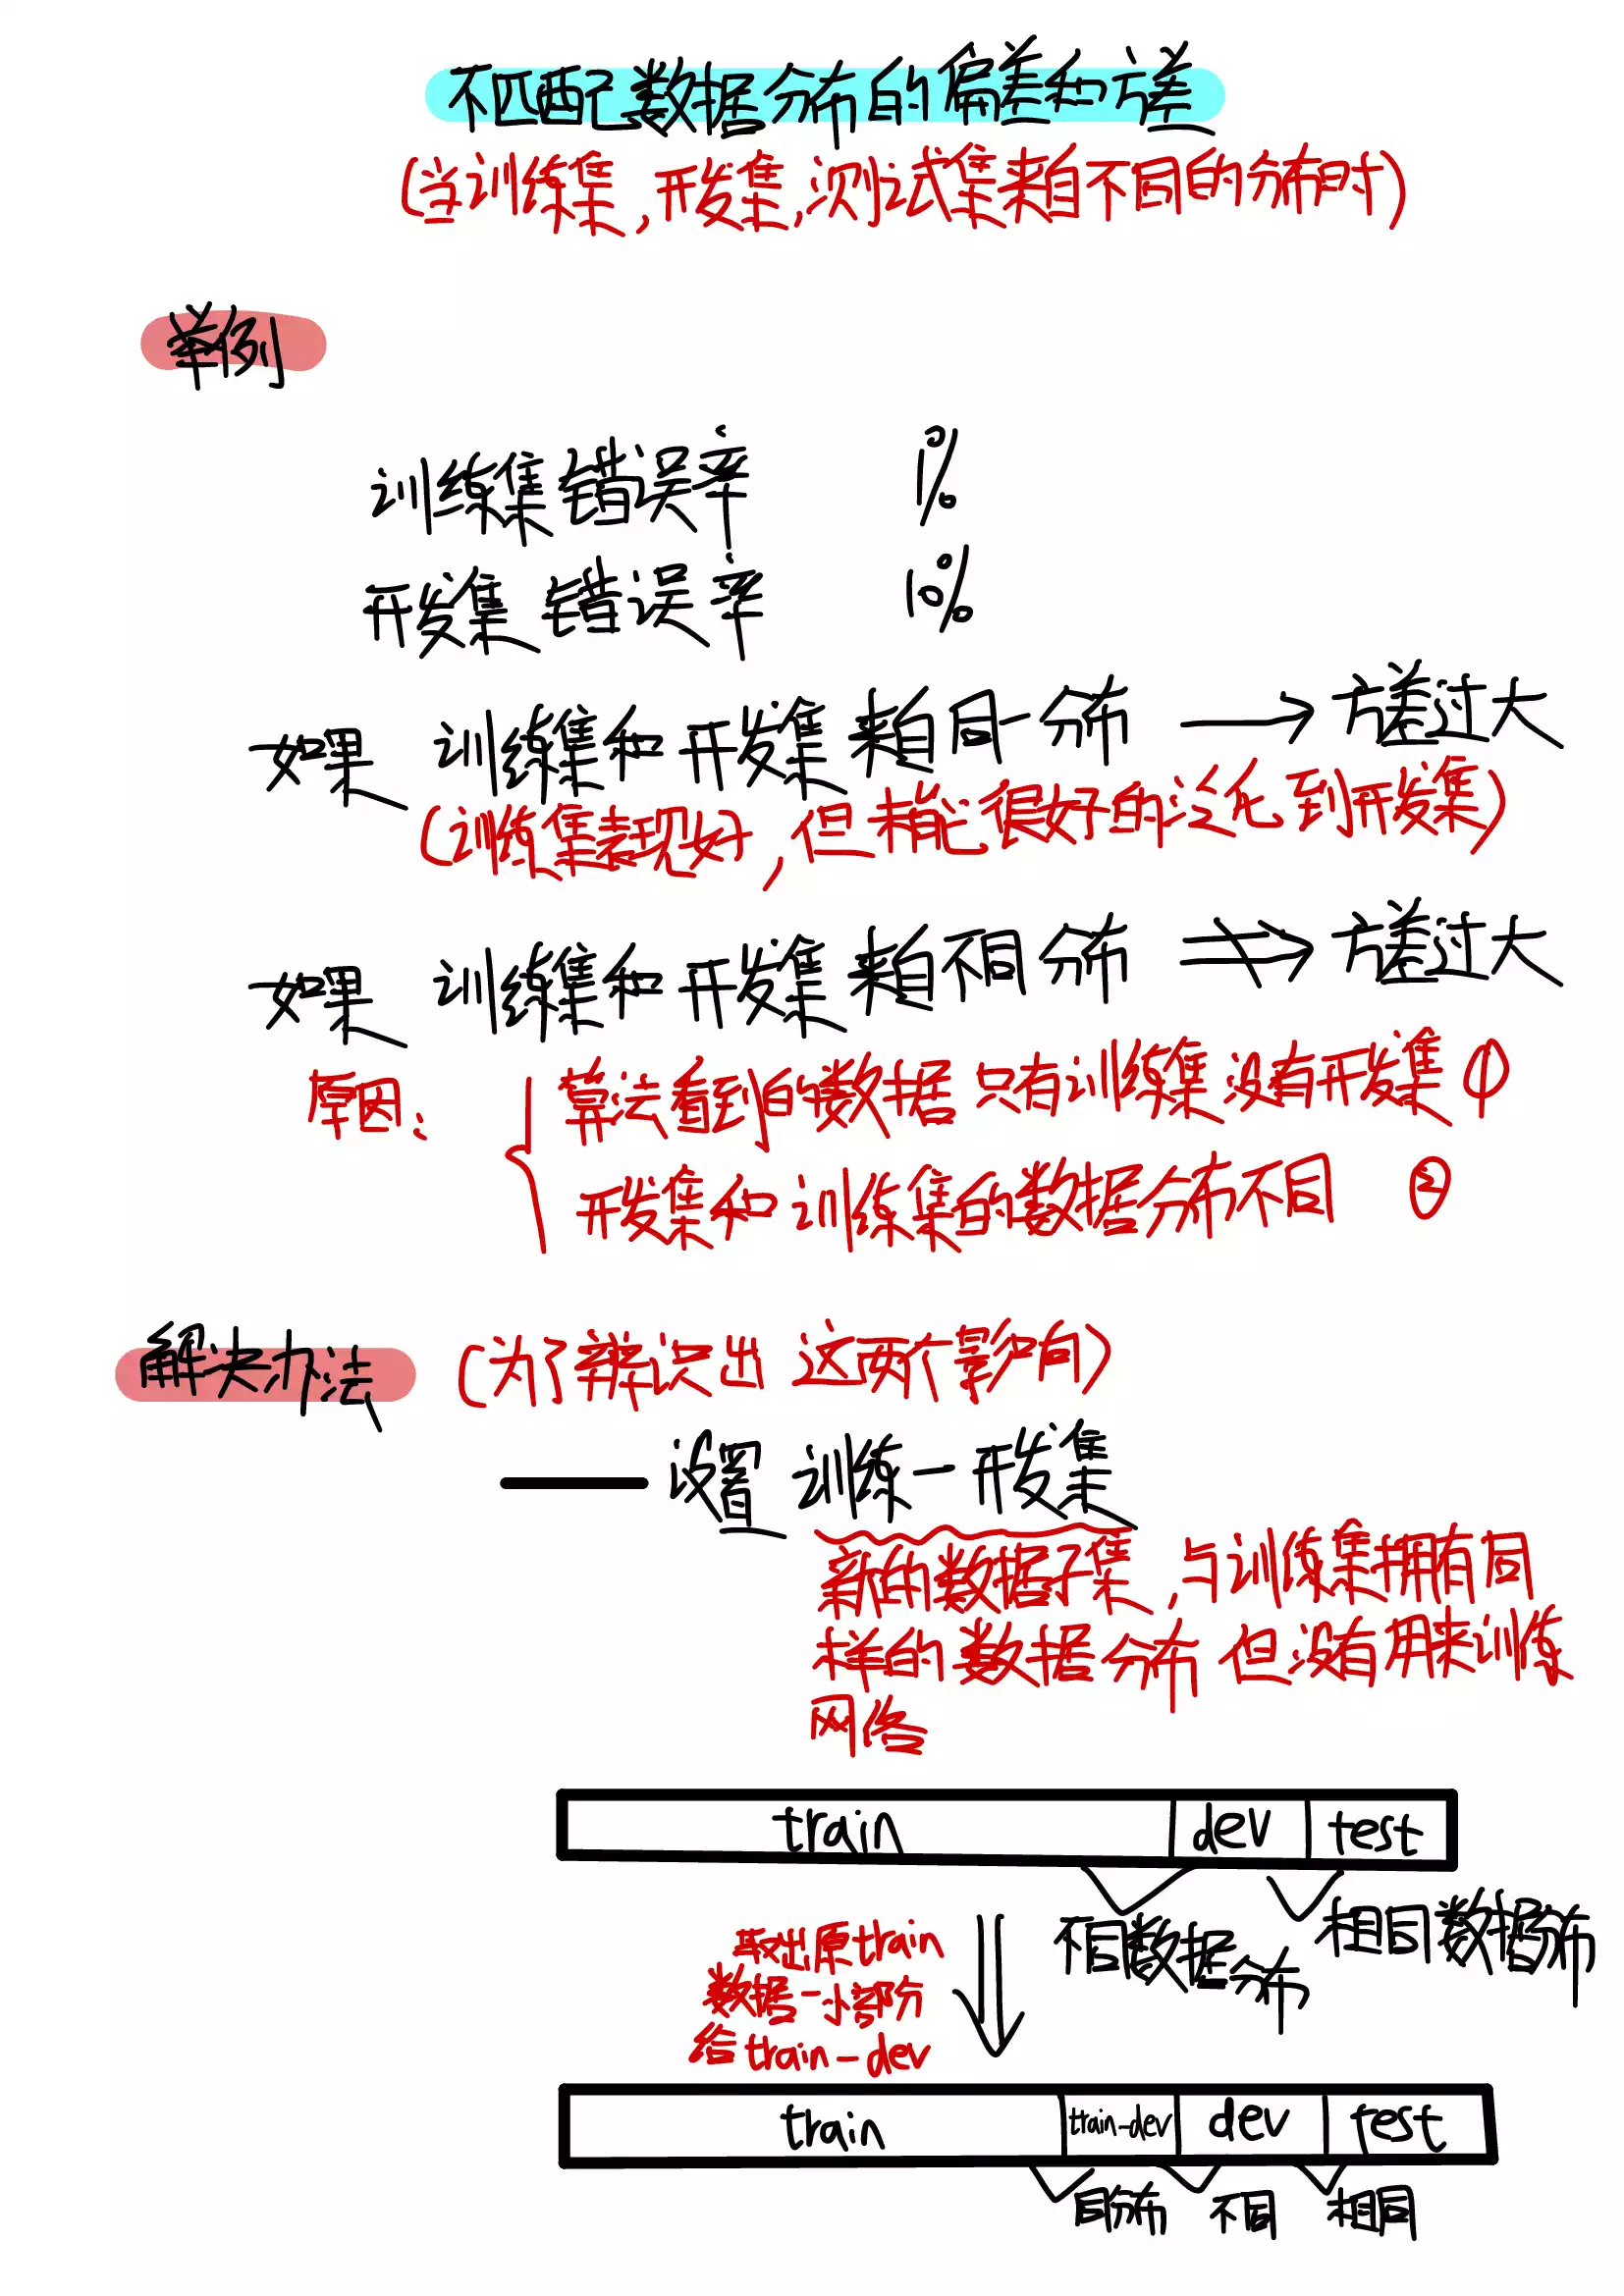 不匹配数据分布的偏差和方差
(当训练集,开发集,测试集来自不同的分布时)
举例
训练集错误率 1%
开发集错误率 10%
如果 训练集和开发集来自同一分布 → 方差过大
(训练集表现好,但未能很好的泛化到开发集)
如果 训练集和开发集来自不同分布 ⇏ 方差过大
原因: { 算法看到的数据只有训练集没有开发集 ①
开发集和训练集的数据分布不同 ②
解决办法 (为了辨识出这两个影响)
—— 设置 训练-开发集
新的数据子集,与训练集拥有同
样的数据分布但没有用来训练
网络
train dev test
不同数据分布 相同数据分布
取出原train
数据一小部分
给train-dev
train train-dev dev test
同分布 不同 相同